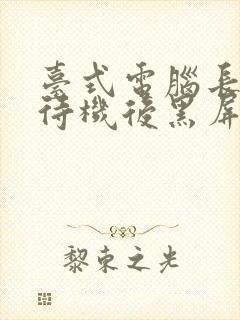 臺式電腦長
待機後黑屏
黎束之光